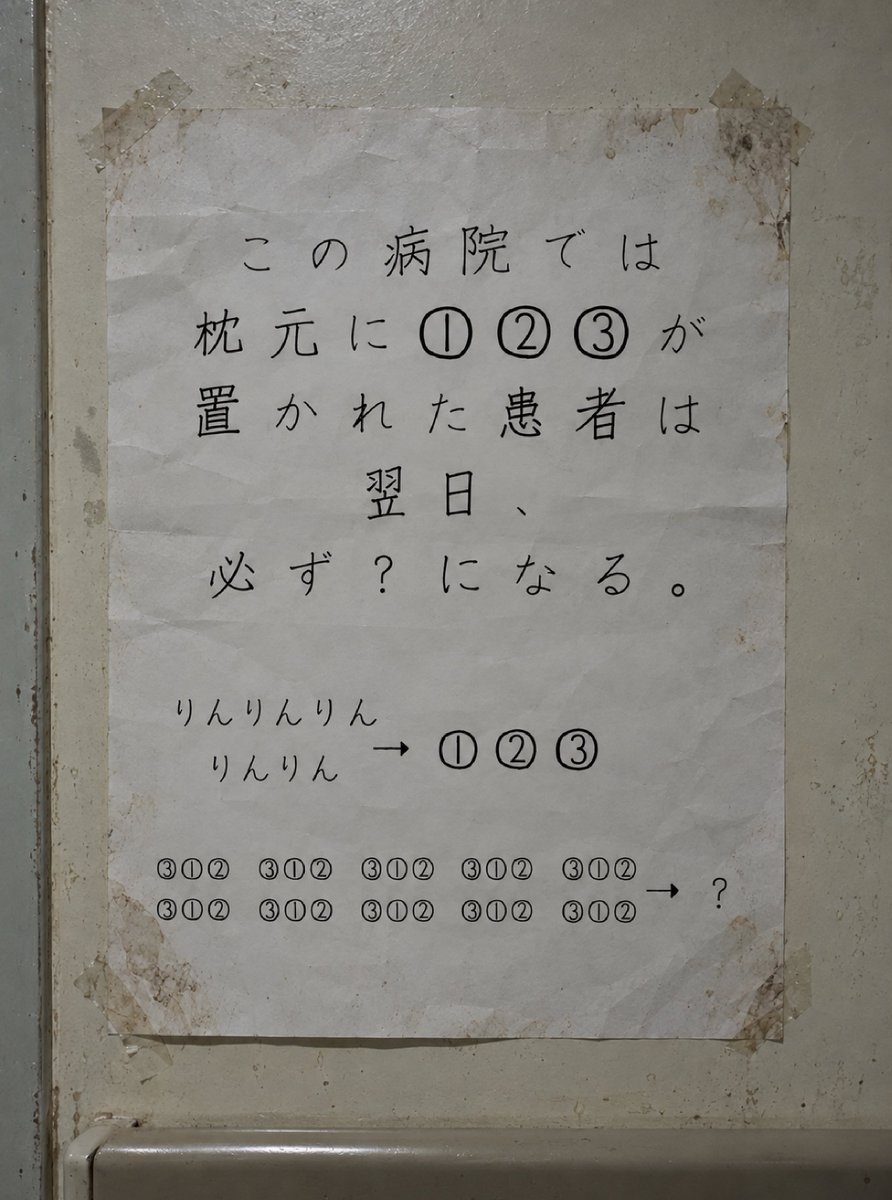 この病院では
枕元に①②③が
置かれた患者は
翌日、
必ず？になる。
りんりんりん
りんりん
→ ①②③
③①② ③①② ③①② ③①② ③①②
③①② ③①② ③①② ③①② ③①②
→ ？